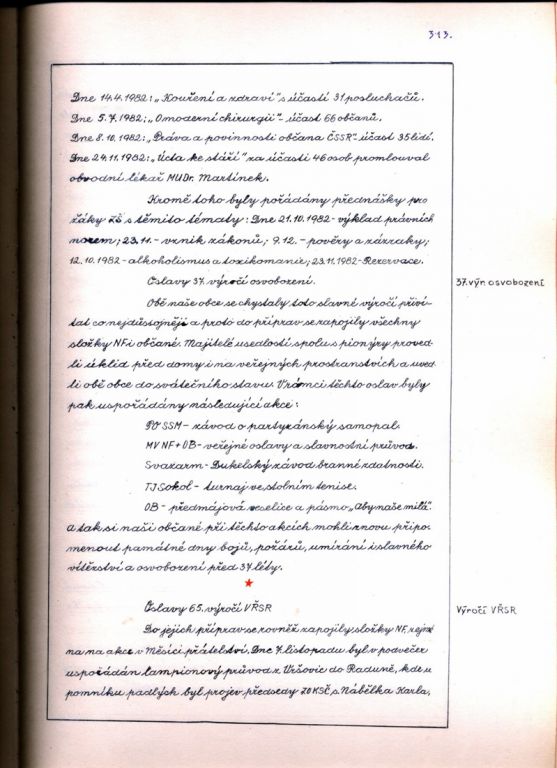 313.
Dne 14.4.1982: „Kouření a zdraví" s účastí 31 posluchačů.
Dne 5.7.1982: „O moderní chirurgii" - účast 66 občanů.
Dne 8.10.1982: „Práva a povinnosti občana ČSSR" - účast 35 lidí.
Dne 24.11.1982: „Úcta ke stáří" za účasti 46 osob promlouval
obvodní lékař MUDr. Martínek.
Kromě toho byly pořádány přednášky pro
žáky ZŠ s těmito tématy: Dne 21.10.1982 - výklad právních
norem; 23.11. - vznik zákonů; 9.12. - pověry a zázraky;
12.10.1982 - alkoholismus a toxikomanie; 23.11.1982 - Rezervace.
Oslavy 37. výročí osvobození.
37. výr. osvobození
Obě naše obce se chystaly toto slavné výročí přiví-
tat co nejdůstojněji a proto do příprav se zapojily všechny
složky NF i občané. Majitelé usedlostí spolu s pionýry proved-
li úklid před domy i na veřejných prostranstvích a uved-
li obě obce do svátečního stavu. V rámci těchto oslav byly
pak uspořádány následující akce:
PO SSM - závod o partyzánský samopal.
MV NF + OB - veřejné oslavy a slavnostní průvod.
Svazarm - Dukelský závod branné zdatnosti.
TJ Sokol - turnaj ve stolním tenise.
OB - předmájová veselice a pásmo „Aby naše milá"
A tak si naši občané při těchto akcích mohli znovu připo-
menout památné dny bojů, požárů, umírání i slavného
vítězství a osvobození před 37 léty.
Oslavy 65. výročí VŘSR
Výročí VŘSR
Do jejich příprav se rovněž zapojily složky NF, zejmé
na na akce v Měsíci přátelství. Dne 7. listopadu byl v podvečer
uspořádán lampionový průvod z Vršovic do Raduně, kde u
pomníku padlých byl projev předsedy ZO KSČ s. Nábělka Karla,